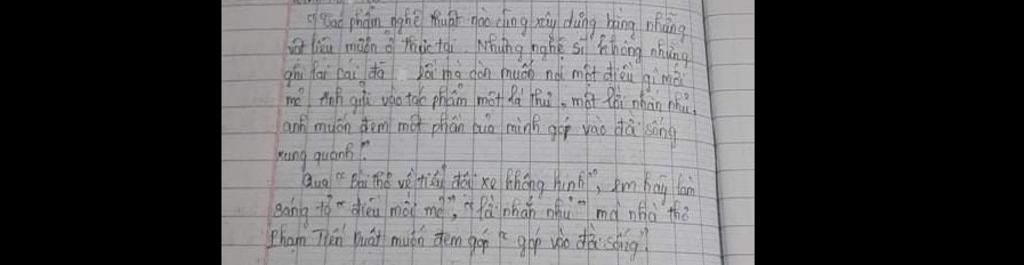 "Tác phẩm nghệ thuật nào cũng xây dựng bằng những
vật liệu mượn ở thực tại. Nhưng nghệ sĩ không những
ghi lại cái đã rồi mà còn muốn nói một điều gì mới
mẻ. Anh gửi vào tác phẩm một lá thư, một lời nhắn nhủ,
anh muốn đem một phần của mình góp vào đời sống
xung quanh".
Qua "Bài thơ về tiểu đội xe không kính", em hãy làm
sáng tỏ "điều mới mẻ", "lời nhắn nhủ" mà nhà thơ
Phạm Tiến Duật muốn đem góp "góp vào đời sống".